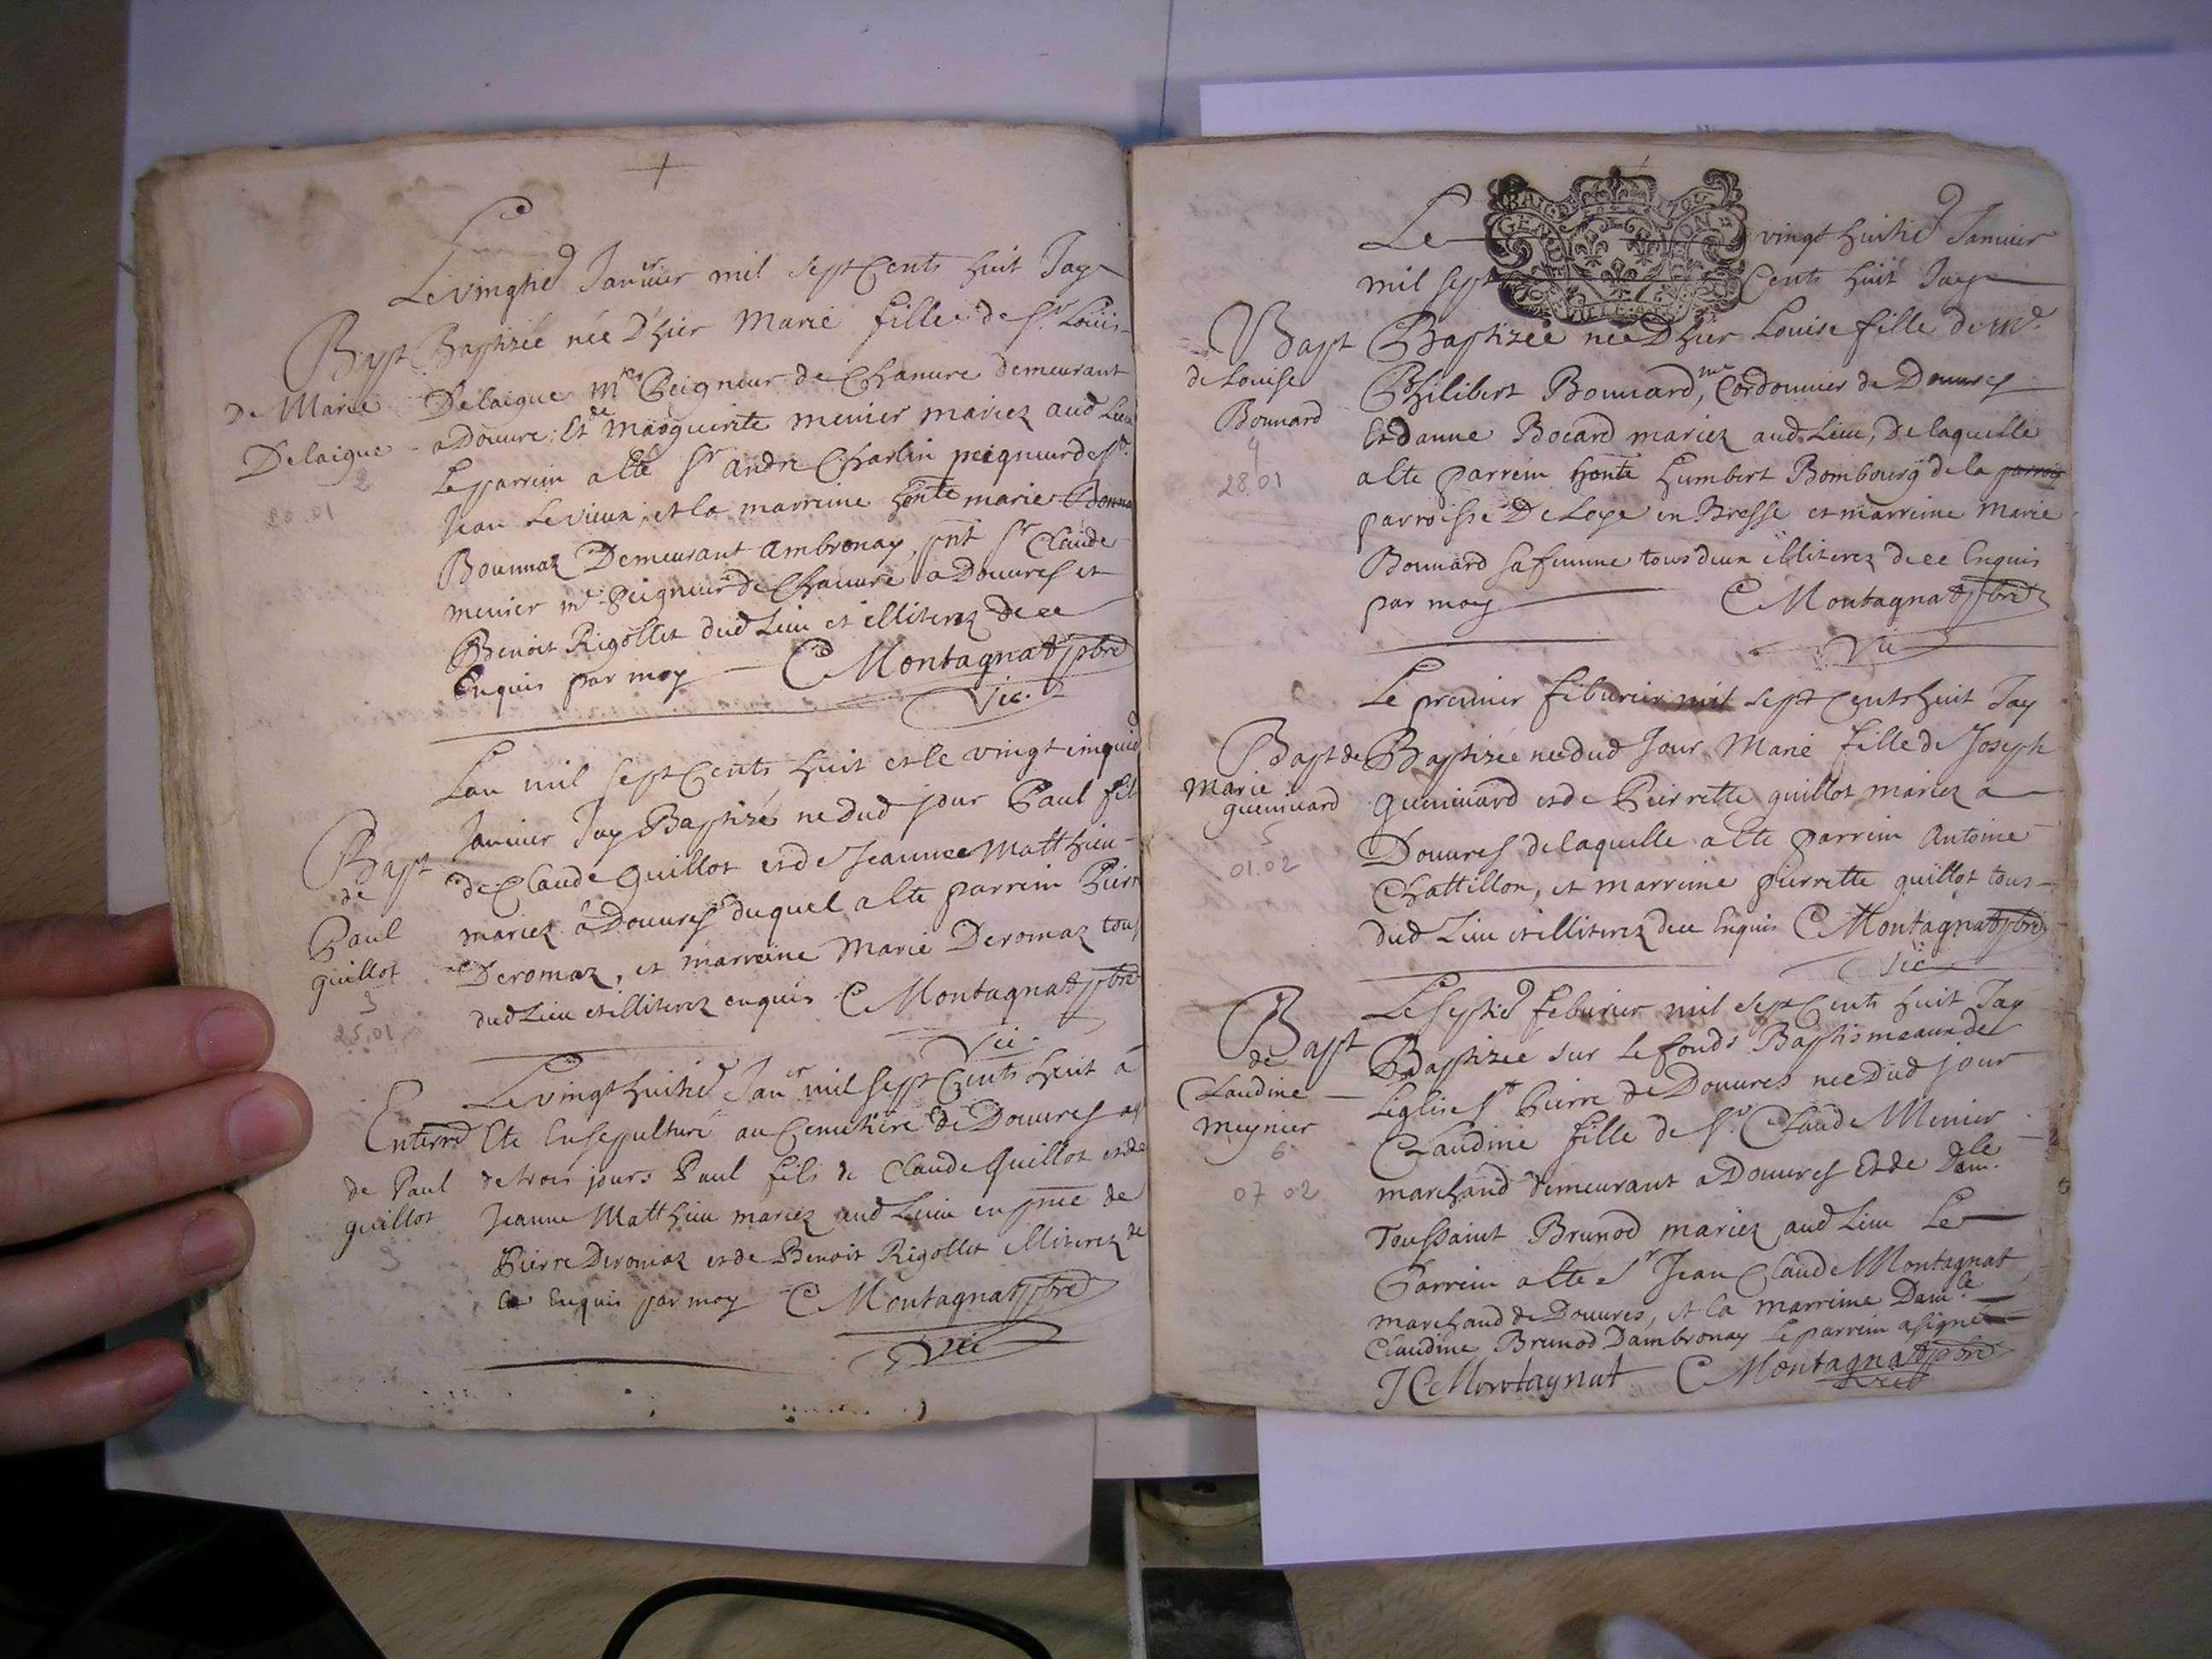 +
Le vingtie Januier mil sept Cents huit Jay
Bapt
de Marie
Delaigue
2
20.01
Baptizée née D'hier Marie fille de Sr Loüis
Delaigue Mre Peigneur de Chanure demeurant
a Douure; Et de Marguerite menier mariez aud Lieu
Le parrein a Eté Sr andre Charlin peigneur de St
Jean Levieux, et la marreine honte marie Bonna
Bounnaz Demeurant ambronay, pnt Sr Claude
menier me Peigneur de Chanure a Douures et
Benoit Rigollet dud Lieu et illiterez de ce
Enquis par moy C Montagnat pbre
Vic.
Lan mil sept Cents huit et le vingt cinquie
Bapt
de
Paul
guillot
3
25.01
Januier Jay Baptizé ne dud jour Paul fils
de Claude Guillot et de Jeannee Matthieu
mariez a Douures duquel a Eté parrein Pierre
Deromaz, et marreine Marie Deromaz tous
dud Lieu et illiterez enquis C Montagnat pbre
Vic.
Le vingt huitie Janer mil sept Cents huit a
Enterre
de Paul
guillot
3
Ete Ensepulturé au Cemetiere de Douures agé
de trois jours Paul fils de Claude Guillot et de
Jeanne Matthieu mariez aud Lieu en pnce de
Pierre Deromaz et de Benoit Rigollet illiterez de
ce Enquis par moy C Montagnat pbre
Vic
GEN DE
Le vingt huitie Januier
mil sept Cents huit Jay
Bapt
de Louise
Bonnard
4
28.01
Baptizée née D'hier Louise fille de Me
Philibert Bonnard, me Cordonnier de Douures
Et danne Bocard mariez aud Lieu, De laquelle
a Ete parrein honte Humbert Bombourg de la parrois
parroisse De Loye en Bresse et marreine Marie
Bonnard sa femme tous deux illiterez de ce Enquis
par moy C Montagnat pbre
Vic
Le premier feburier mil sept Cents huit Jay
Bapt de
Marie
gueninard
5
01.02
Baptizée nee dud Jour Marie fille de Joseph
gueninard et de Pierrette guillot mariez a
Douures de laquelle a Ete parrein Antoine
Chattillon, et marreine pierrette guillot tous
dud Lieu et illiterez de ce Enquis C Montagnat pbre
Vic
Le septie feburier mil sept Cents huit Jay
Bapt
de
Claudine
meynier
6
07 02
Baptizée sur Le fonds Baptismeaux de
Leglise St Pierre de Douures née dud jour
Claudine fille de Sr Claude Menier
marchand demeurant a Douures Et de Damle
Toussaint Brunod mariez aud Lieu Le
Parrein a Eté Sr Jean Claude Montagnat
marchand de Douures, et la marreine Damle
Claudine Brunod Dambronay Le parrein a signé
J C Montagnat C Montagnat pbre
Vic